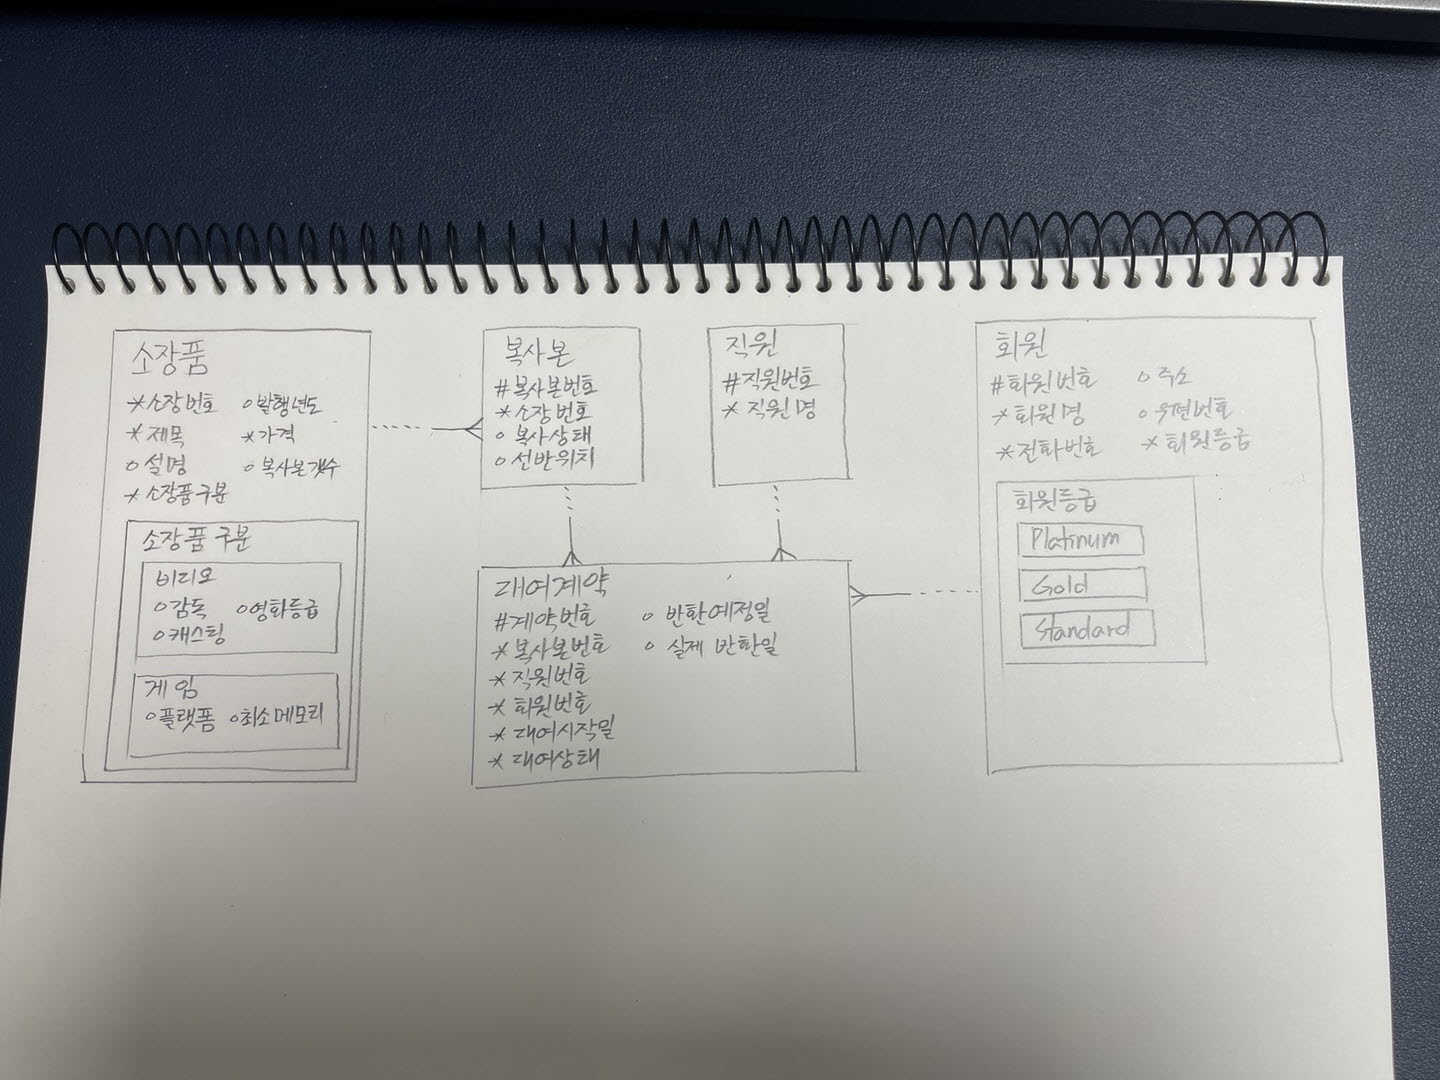 소장품
*소장번호 o발행년도
*제목 *가격
o설명 o복사본갯수
*소장품구분
소장품 구분
비디오
o감독 o영화등급
o캐스팅
게임
o플랫폼 o최소메모리
복사본
#복사본번호
*소장번호
o복사상태
o선반위치
직원
#직원번호
*직원명
대여계약
#계약번호 o 반환예정일
*복사본번호 o 실제 반환일
*직원번호
*회원번호
*대여시작일
*대여상태
회원
#회원번호 o주소
*회원명 o우편번호
*전화번호 *회원등급
회원등급
Platinum
Gold
Standard